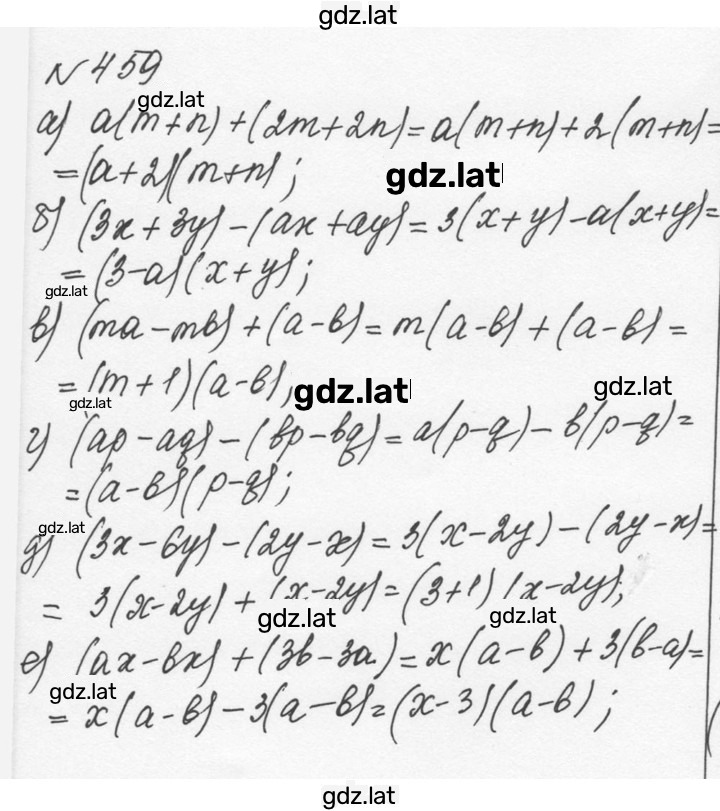 gdz.lat
№ 459
gdz.lat
а) a(m+n)+(2m+2n)=a(m+n)+2(m+n)=
=(a+2)(m+n);
gdz.lat
б) (3x+3y)-(ax+ay)=3(x+y)-a(x+y)=
=(3-a)(x+y);
gdz.lat
в) (ma-mb)+(a-b)=m(a-b)+(a-b)=
=(m+1)(a-b);
gdz.lat
gdz.lat
gdz.lat
г) (ap-aq)-(bp-bq)=a(p-q)-b(p-q)=
=(a-b)(p-q);
gdz.lat
д) (3x-6y)-(2y-x)=3(x-2y)-(2y-x)=
= 3(x-2y)+(x-2y)=(3+1)(x-2y);
gdz.lat
gdz.lat
е) (ax-bx)+(3b-3a)=x(a-b)+3(b-a)=
gdz.lat
= x(a-b)-3(a-b)=(x-3)(a-b);
gdz.lat